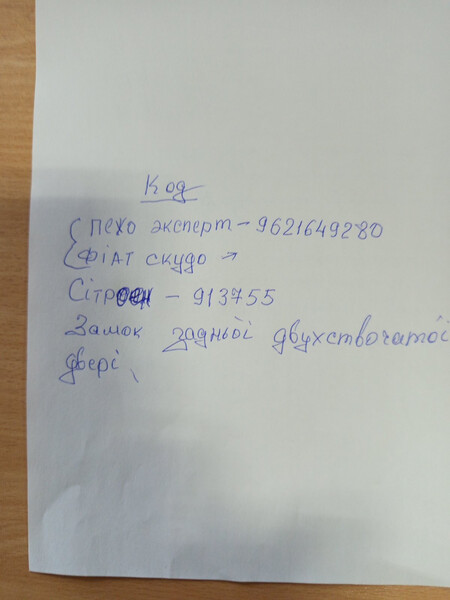 Код
пежо эксперт - 9621649280
фіат скудо →
Сітроен - 913755
Замок задньої двухствочатої
двері